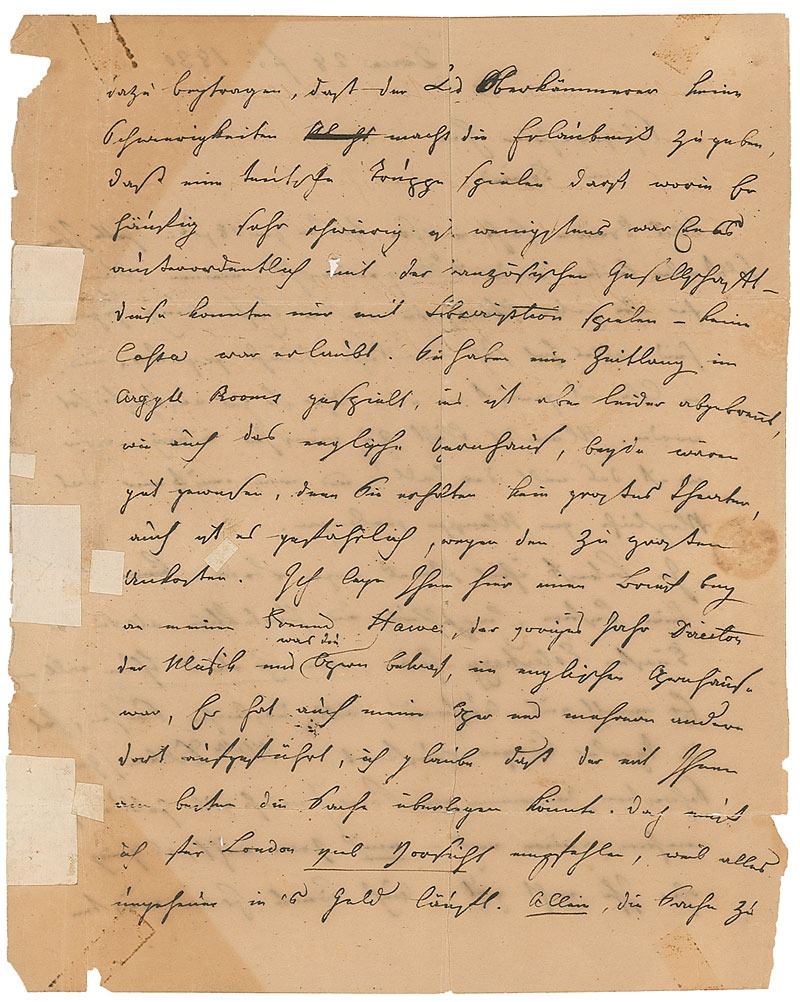 dazu beytragen, daß der Lord Oberkämmerer keine
Schwierigkeiten macht die Erlaubniß zu geben,
daß eine teutsche Truppe spielen darf worin Er
häufig sehr schwierig ist wenigstens war Er es
ausserordentlich mit der französischen Gesellschaft –
diese konnten nur mit Subscription spielen – keine
Casse war erlaubt. Sie haben eine Zeitlang im
Argyll Rooms gespielt, das ist aber leider abgebrannt,
wie auch das englische Opernhaus, beyde wären
gut gewesen, denn Sie erhalten kein großes Theater,
auch ist es gefährlich, wegen den zu großen
Unkosten. Ich lege Ihnen hier einen Brief bey
an meinen Freund Hawes, der voriges Jahr Director
was die
der Musik und Opern betraf, im englischen Opernhause
war, Er hat auch meine Oper und mehrere andere
dort aufgeführt, ich glaube daß der mit Ihnen
am besten die Sache überlegen könnte. Doch muß
ich für London viel Vorsicht empfehlen, weil alles
ungeheuer in's Geld läuft. Allein, die Sache zu